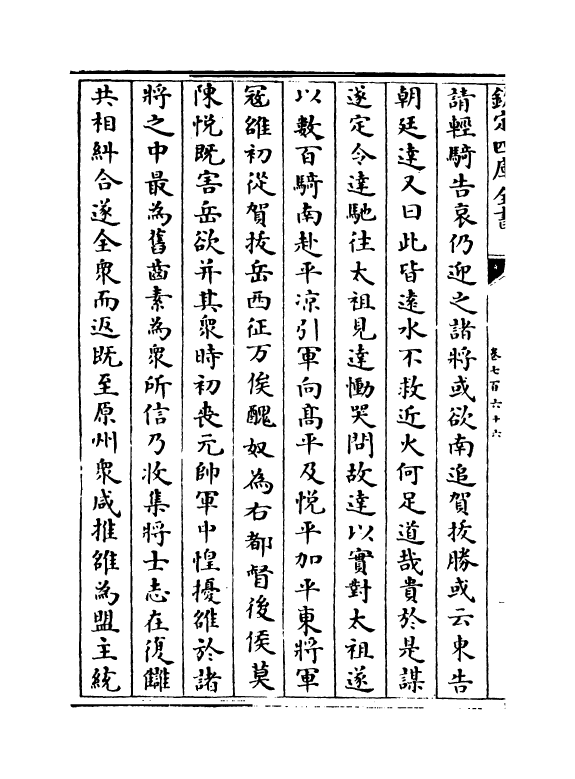 欽定四庫全書
卷七百六十六
請輕騎告哀仍迎之諸將或欲南追賀拔勝或云東告
朝廷達又曰此皆遠水不救近火何足道哉貴於是謀
遂定令達馳往太祖見達慟哭問故達以實對太祖遂
以數百騎南赴平凉引軍向髙平及悦平加平東將軍
冦雒初從賀拔岳西征万俟醜奴為右都督後侯莫
陳悦既害岳欲并其衆時初丧元帥軍中惶擾雒於諸
將之中最為舊齒素為衆所信乃收集將士志在復讎
共相糾合遂全衆而返既至原州衆咸推雒為盟主統